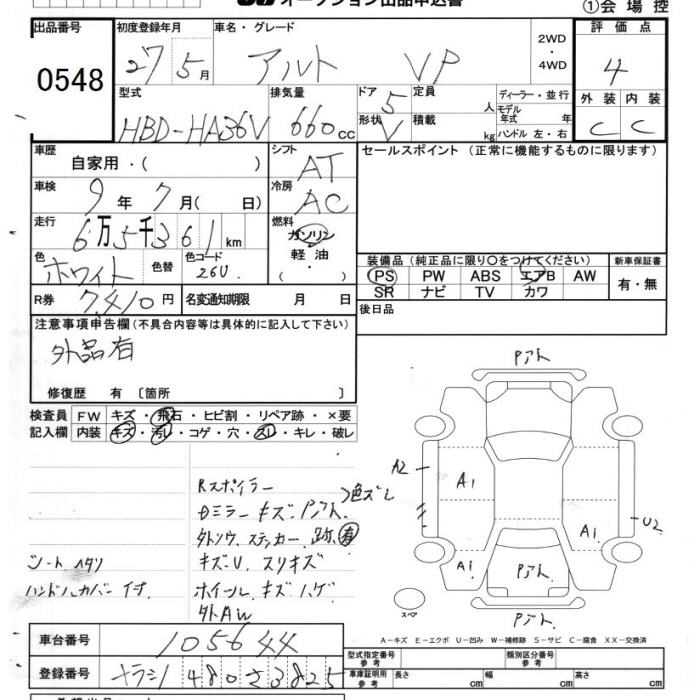 オークション出品申込書
①会場控
出品番号 初度登録年月 車名・グレード 評価点
0548 27 5月 アルト VP 2WD・4WD 4
型式 排気量 ドア 定員 ディーラー・並行 外装 内装
HBD-HA36V 660cc 5 人 モデル年式 年 C C
形状 V 積載 kg ハンドル 左・右
車歴 自家用・( ) シフト AT セールスポイント (正常に機能するものに限ります)
車検 9年7月( 日) 冷房 AC
走行 6万5千361km 燃料 ガソリン 軽油・( )
色 ホワイト 色替 色コード 26U
装備品(純正品に限り○をつけてください) 新車保証書
PS PW ABS エアB AW 有・無
SR ナビ TV カワ
R券 7,410円 名変通知期限 月 日 後日品
注意事項申告欄(不具合内容等は具体的に記入して下さい)
外品有
修復歴 有 〔箇所 〕
検査員 FW キズ・飛石・ヒビ割・リペア跡・×要
記入欄 内装 キズ・汚レ・コゲ・穴・スレ・キレ・破レ
Pアト
A2
A1
A1
A1
U2
Pアト
スペア
Pアト
Rスポイラー
Dミラー キズ Pアト 色ズレ
外ソウ、ステッカー 跡 有
キズU、スリキズ
ホイール キズ ハゲ
外AW
シート ヘタリ
ハンドルカバー 付
A-キズ E-エクボ U-凹み W-補修跡 S-サビ C-腐食 XX-交換済
車台番号 105644
型式指定番号 参考 類別区分番号 参考
登録番号 480 さ 3825
車庫証明用 参考 長さ cm 幅 cm 高さ cm